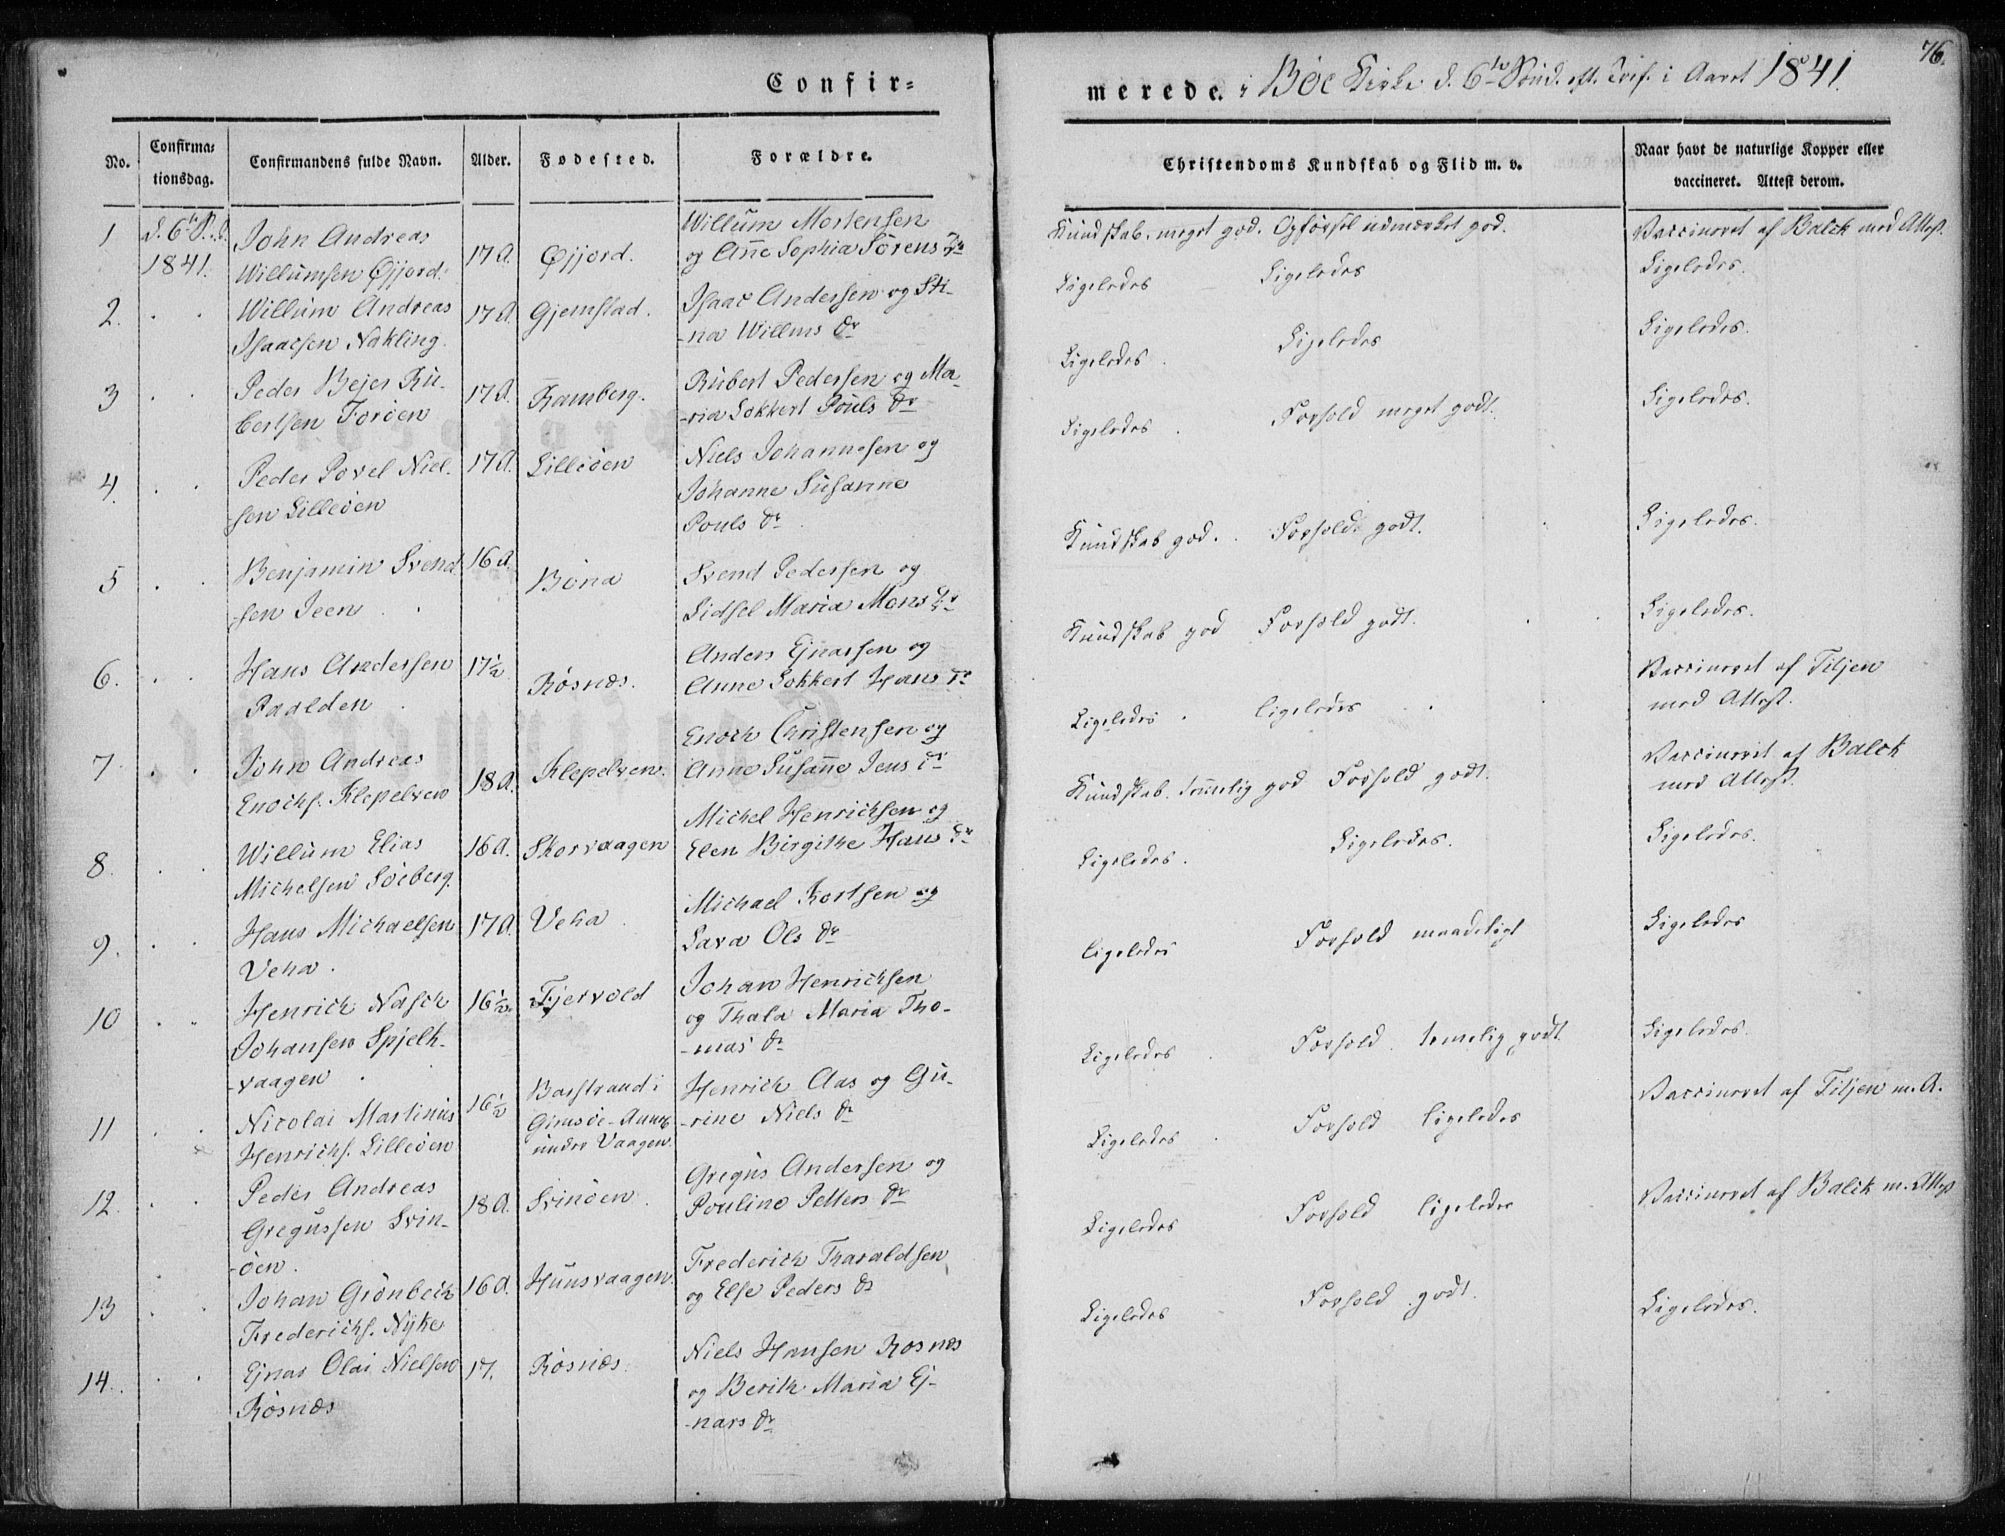 76.
Confir=
merede. i Bøe Kirke d. 6te Sønd. eft. Tref. i Aaret 1841.
No.
Confirma=
tionsdag.
Confirmandens fulde Navn.
Alder.
Fødested.
Forældre.
Christendoms Kundskab og Flid m. v.
Naar havt de naturlige Kopper eller
vaccineret. Attest derom.
1
d. 6te
1841.
John Andreas
Willumsen Øjjord.
17 A.
Øjjord.
Willum Mortensen
og Anne Sophia Sörens Dr
Kundskab. meget god. Opførsel udmærket god.
Vaccineret af Balck med Attest.
2.
Willum Andreas
Isaacsen Nøkling.
17 A
Gjemstad.
Isaac Andersen og Sti-
-na Willums Dr
Ligeledes Ligeledes
Ligeledes.
3
Peder Bejer Ru-
bertsen Foröen
17 A.
Ramberg.
Rubert Pedersen og Ma-
-ria Lokkert Pouls Dr
Ligeledes. Ligeledes
Ligeledes.
4.
Peder Povel Niel-
sen Lilleöen
17 A.
Lilleöen
Niels Johannesen og
Johanne Susanne
Pouls Dr
Ligeledes. Forhold meget godt.
Ligeledes.
5
Benjamin Svend
sen Jeen
16 A
Böna
Svend Pedersen og
Lidsel Maria Mons Dr
Kundskab god. Forhold godt.
Ligeledes.
6.
Hans Andersen
Paalden
17½
Rösnæs.
Anders Ejnarsen og
Anne Lokkert Hans Dr
Kundskab god Forhold godt.
Ligeledes.
7.
John Andreas
Enochs. Klepelven
18 A.
Klepelven.
Enoch Christensen og
Anne Susanne Jens Dr
Ligeledes. ligeledes
Vaccineret af Tiljen
med Attest.
8.
Willum Elias
Michelsen Söeberg.
16 A.
Skorvaagen
Michel Henrichsen og
Elen Birgithe Hans Dr
Kundskab. temelig god Forhold godt.
Vaccineret af Balck
med Attest.
9.
Hans Michaelsen
Veha.
17 A.
Veha
Michael Kortsen og
Sara Ols Dr
Ligeledes. Ligeledes.
Ligeledes.
10
Henrich Nasch
Johansen Spjelk-
-vaagen
16½.
Fjervold
Johan Henrichsen
og Thala Maria Tho-
-mas Dr
ligeledes Forhold maadeligt
Ligeledes
11
Nicolai Martinus
Henrichs. Lilleöen
16½
Barstrand i
Gimsöe-Annex
under Vaagen.
Henrich Aas og Gu-
-rine Niels Dr
Ligeledes Forhold temelig godt.
Ligeledes.
12.
Peder Andreas
Gregussen Svin-
-öen.
18 A.
Svinöen.
Gregus Andersen og
Pouline Petters Dr
Ligeledes Forhold ligeledes
Vaccineret af Tiljen m. A.
13
Johan Grönbech
Frederichs. Nyke
16 A.
Hunsvaagen.
Frederich Tharaldsen
og Else Peders Dr
Ligeledes Forhold ligeledes
Vaccineret af Balck m. Attest
14.
Ejnar Olai Nielsen
Rösnæs
17.
Rösnæs.
Niels Hansen Rosnæs
og Berith Maria Ej-
-nars Dr
Ligeledes Forhold godt.
Ligeledes.